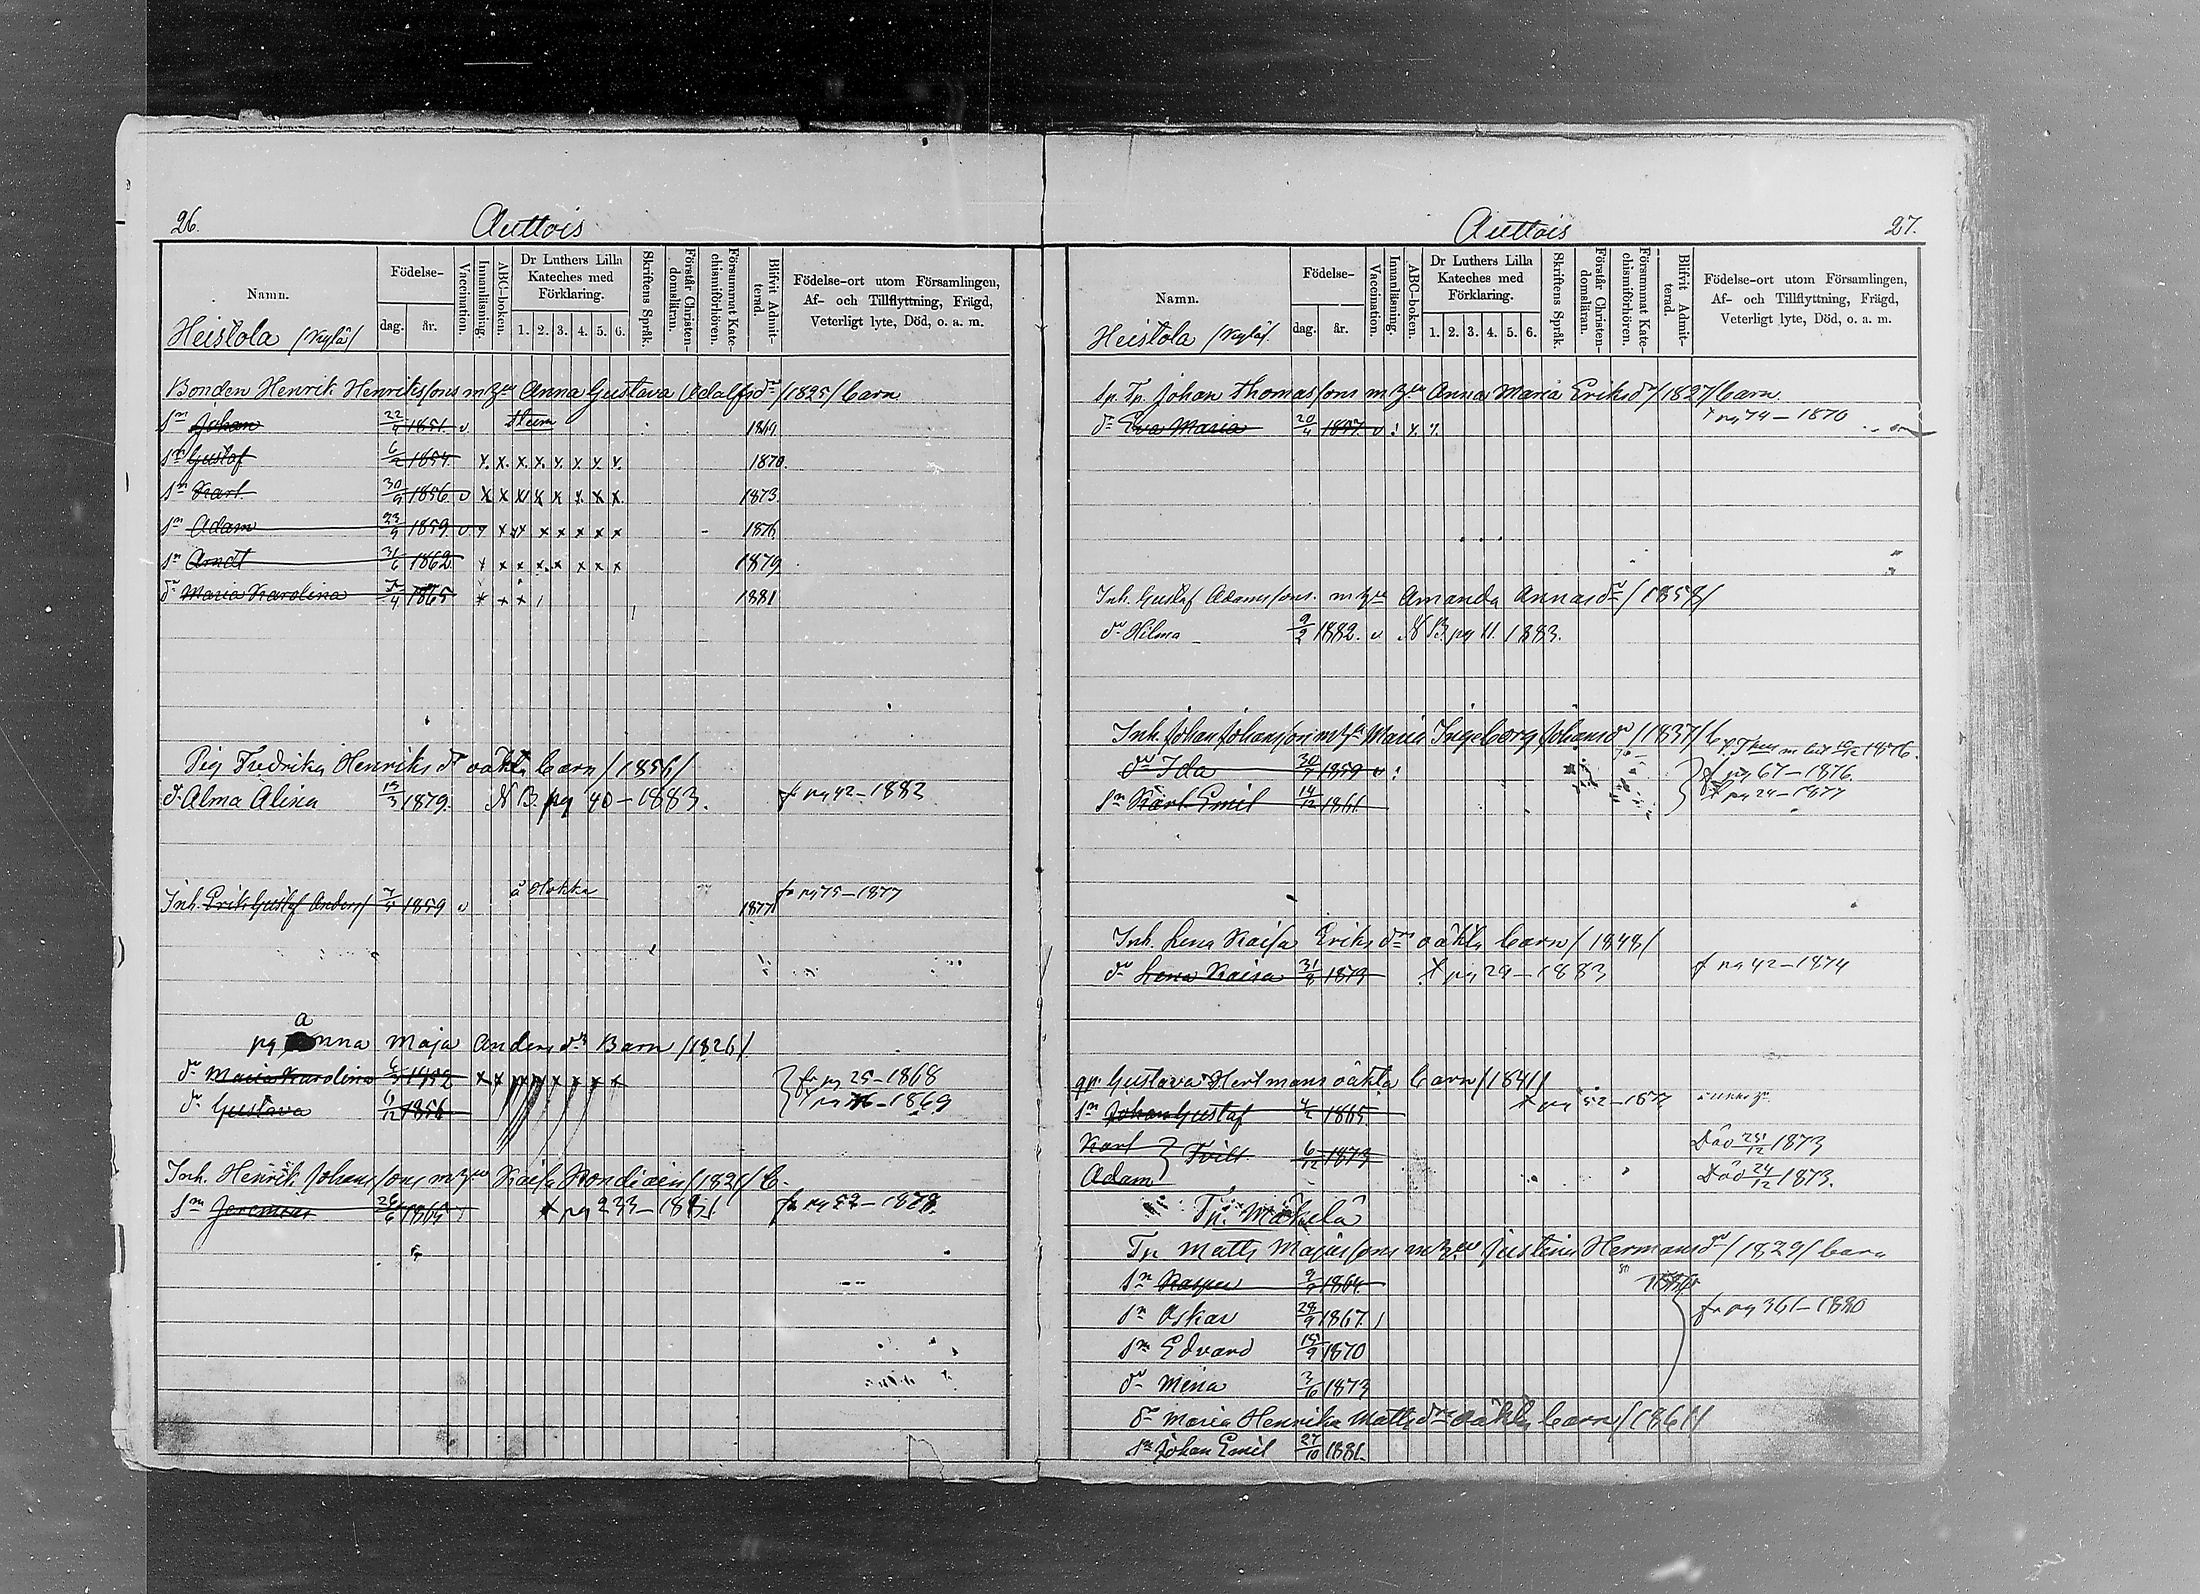 26.
Auttois
Namn.
Födelse-
dag.
år.
Vaccination.
Innanläsning.
ABC-boken.
Dr Luthers Lilla Kateches med Förklaring.
1. 2. 3. 4. 5. 6.
Skriftens Språk.
Förstår Christendomsläran.
Försummat Katechismiförhören.
Blifvit Admitterad.
Födelse-ort utom Församlingen,
Af- och Tillflyttning, Frägd,
Veterligt lyte, Död, o. a. m.
Heistola /Kylä/
Bonden Henrik Henrikssons m h Anna Gustava Adolfsdr /1825/ barn
sn Johan 22/9 1851. v 1869
sn Gustaf 6/2 1854 x. x. x. x. x. x x x. 1870.
sn Karl 30/9 1856 v x x x x x x x x. 1873
sn Adam 23/9 1859 v x x x x x x x x 1876
sn Arndt 31/6 1862 x x x x. x x x x 1879
dr Maria Karolina 1865 x x x / 1881
Pig Fredrika Henriksdr oäkta barn /1856/
dr Alma Alina 15/3 1879. N B. pg 40-1883. fr pg 42-1882
Inh. Erik Gustaf Anders 1859 v 1877 fr pg 75-1877
a
pg nna Maja Andersdrs Barn /1826/
dr Maria Karolina 1852 x x x x x x x x fr pg 25-1868
dr Gustava 6/12 1856 1869
Inh. Henrik Johanssons m h Kaisa /1821/ b.
sn Jeremias 26/6 1865 x pg 233-1881 fr pg 52-1878.
Auttois
27.
Namn.
Födelse-
dag.
år.
Vaccination.
Innanläsning.
ABC-boken.
Dr Luthers Lilla Kateches med Förklaring.
1. 2. 3. 4. 5. 6.
Skriftens Språk.
Förstår Christendomsläran.
Försummat Katechismiförhören.
Blifvit Admitterad.
Födelse-ort utom Församlingen,
Af- och Tillflyttning, Frägd,
Veterligt lyte, Död, o. a. m.
Heistola /Kylä/.
Sp. Tp. Johan Thomassons m h Anna Maria Eriksdr /1827/ barn
dr Eva Maria 20/4 1857 v : x. x. x pg 74-1870
Inh. Gustaf Adamssons. m h Amanda Annasdr /1858/
dr Hilma 9/2 1882. v N B. pg 11. 1883.
Inh. Johan Johansson m h Maria Ingeborg Johansdr /1837/ b
dr Ida 30/7 1859 v : fr pg 67-1876.
sn Karl Emil 14/12 1861 x pg 24-1877
Inh. Lena Kaisa Eriksdrs oäkta barn /1848/
dr Lena Kaisa 31/8 1873 x pg 29-1883 fr pg 42-1874
gp. Gustava Hertmans oäkta barn /1841/
sn Johan Gustaf 4/2 1865 x pg 52-1877
Karl } Tvill. 6/12 1873 Död 25/12 1873
Adam Död 24/12 1873.
Tp. Mäkelä
Tp Matts Majassons m h Justina Hermansdr /1829/ barn
sn Kasper 9/9 1864
sn Oskar 28/9 1867 / fr pg 361-1880
sn Edvard 15/9 1870
dr Mina 3/6 1873
dr Maria Henrika Mattsdrs oäkta barn /1861/
sn Johan Emil 27/10 1881.